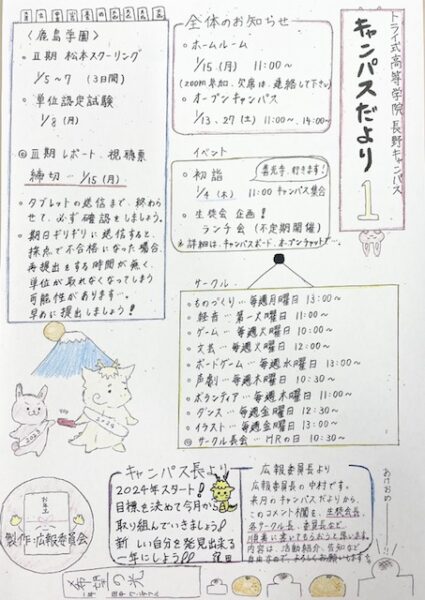 トライ式高等学院 長野キャンパス
キャンパスだより
1
全体のお知らせ
・ホームルーム
1/15(月) 11:00〜
(zoom参加、欠席は、連絡して下さい)
・オープンキャンパス
1/13、27(土) 11:00〜、14:00〜
イベント
・初詣
善光寺、行きます!
1/4(木) 11:00 キャンパス集合
・生徒会 企画!
ランチ会(不定期開催)
※詳細は、キャンパスボード、オープンチャットで…
<鹿島学園>
・Ⅲ期 松本スクーリング
1/5〜7 (3日間)
・単位認定試験
1/8(月)
◎Ⅲ期 レポート、視聴票
締切…1/15(月)
・タブレットの返信まで、終わら
せて、必ず確認をしましょう。
・期日ギリギリに返信すると、
採点で不合格になった場合、
再提出をする時間が無く、
単位が取れなくなってしまう
可能性があります…。
早めに提出しましょう!
サークル
・ものづくり…毎週月曜日 13:00〜
・軽音…第一火曜日 11:00〜
・ゲーム…毎週火曜日 10:00〜
・文芸…毎週火曜日 12:00〜
・ボードゲーム…毎週水曜日 13:00〜
・声劇…毎週木曜日 10:30〜
・ボランティア…毎週木曜日 11:00〜
・ダンス…毎週金曜日 12:30〜
・イラスト…毎週金曜日 13:00〜
◎サークル長会…HRの日 10:30〜
2023
2024
キャンパス長より
2024年スタート!
目標を決めて今月から
取り組んでいきましょう!!
新しい自分を発見出来る
一年にしよう!!
窪田
広報委員長より
広報委員長の中村です。
来月のキャンパスだよりから、
このコメント欄を、生徒会長、
各サークル長、委員長など、
順番に書いてもらおうと思います。
内容は、活動紹介、告知など
自由なので、よろしくお願いします。
あけおめ
お年玉
製作:広報委員会
希望の光